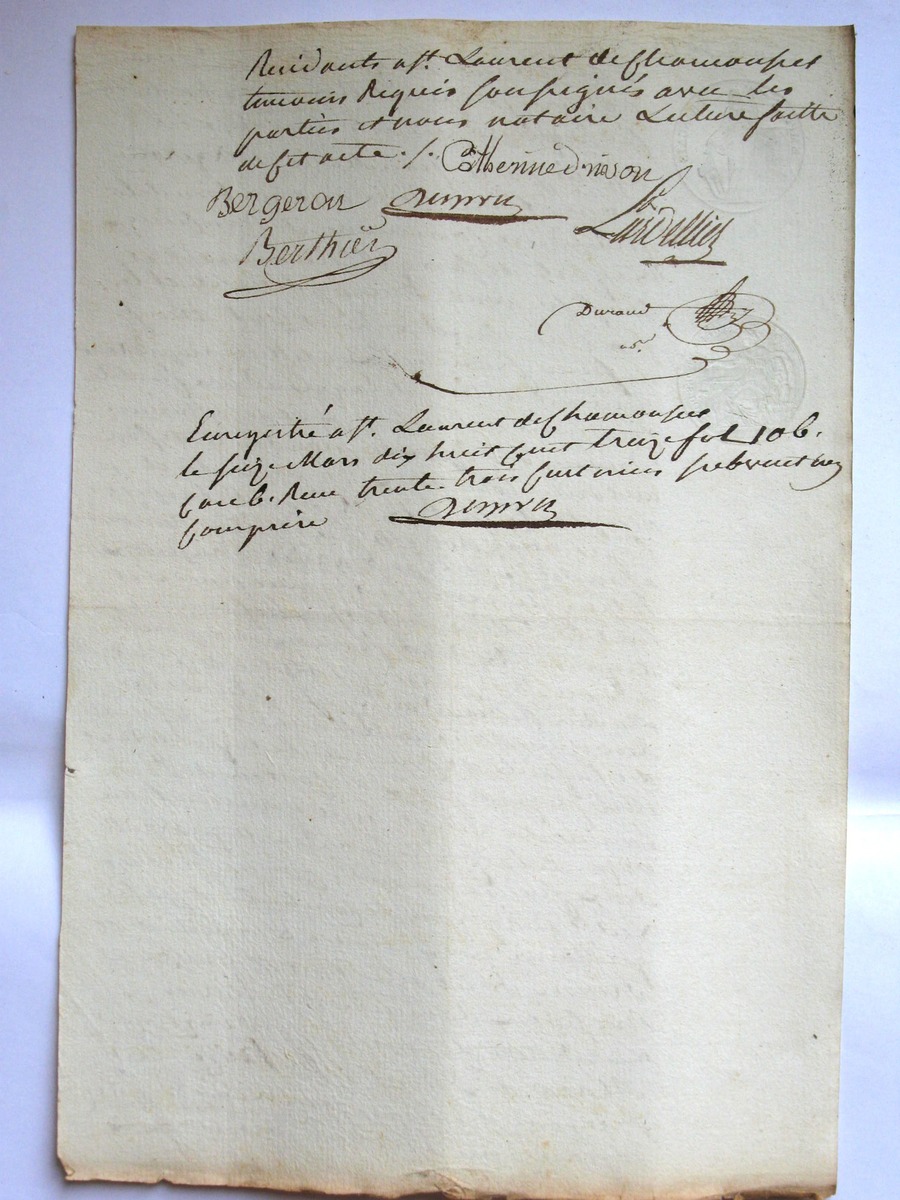 Residants a st. Laurent de Chamousset
temoins Requis soussignés avec les
parties et nous notaire Lecture faitte
de cet acte ./.
Bergeron
Berthier
Durand
Enregistré a st. Laurent de Chamousset
le seize Mars dix huit cent treize fol 106.
case 6. Recu trente trois francs subvention
comprise